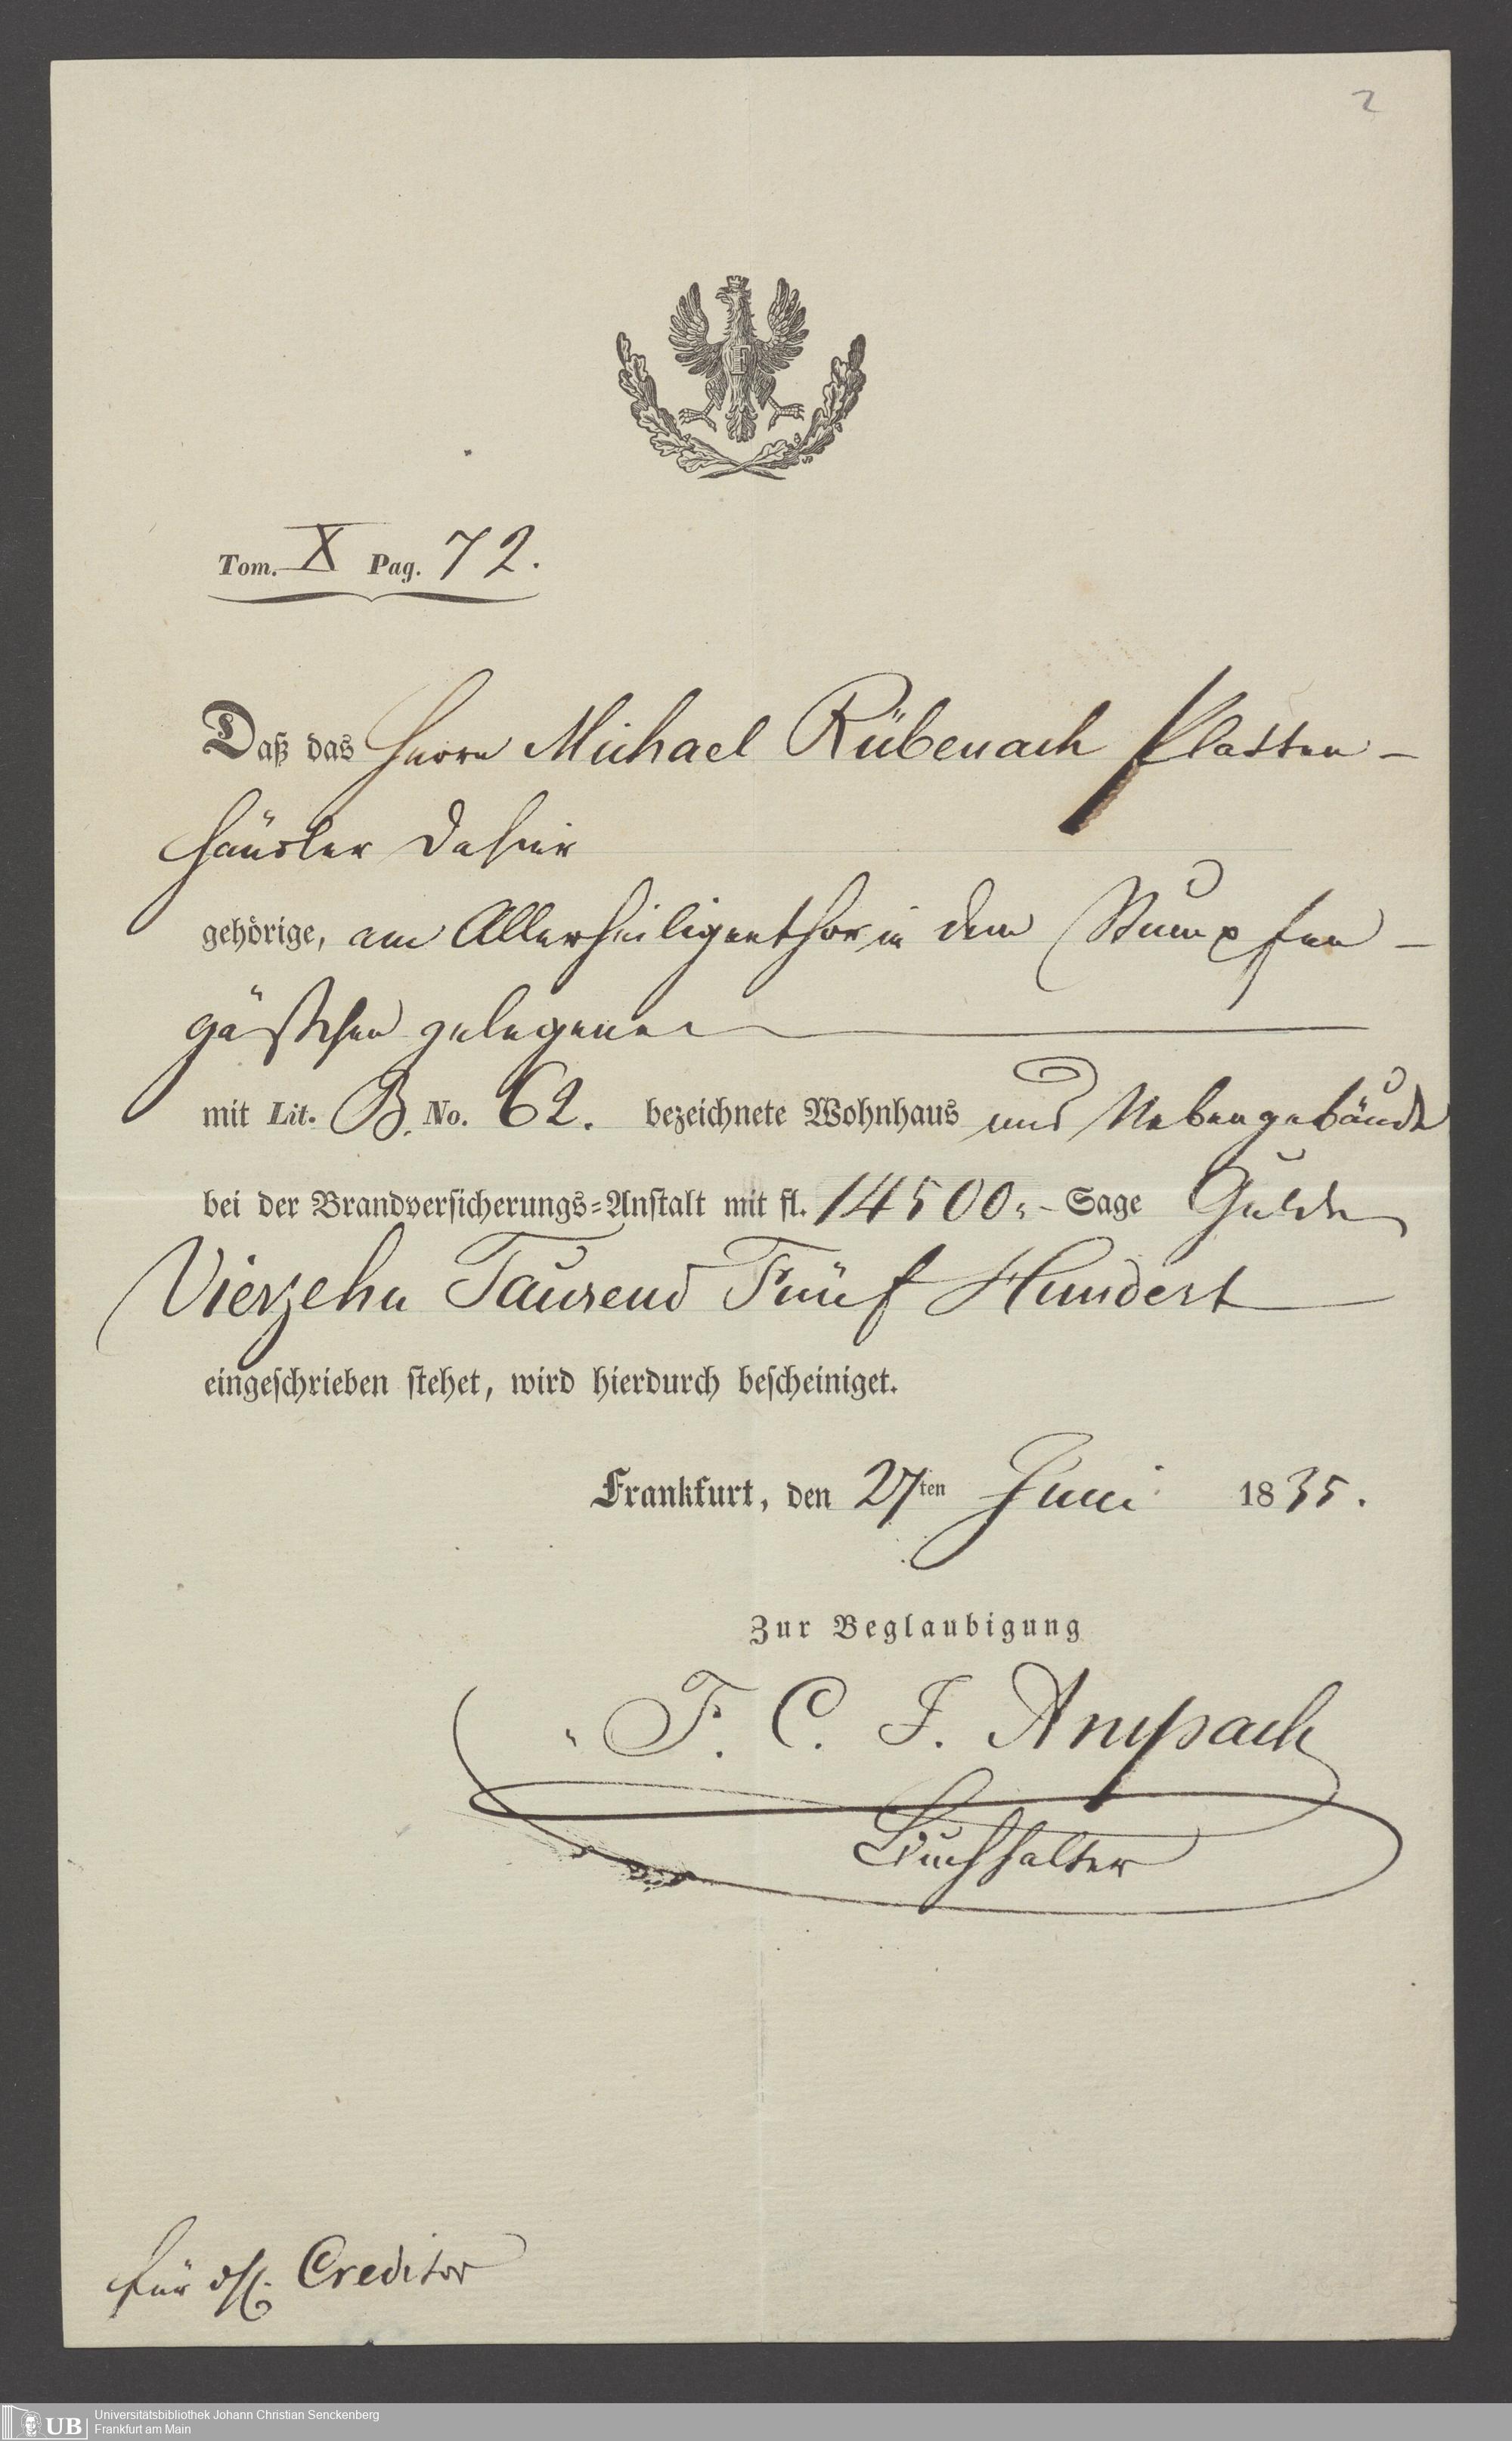 2
Tom. X Pag. 72.
Daß das Herrn Michael Rübenach
häusler dahier
gehörige, am Allerheiligenthor in dem Stumpfen-
gäßchen gelegene
mit Lit. B. No. 62. bezeichnete Wohnhaus und Nebengebäude
bei der Brandversicherungs-Anstalt mit fl. 14500,- Sage Gulden
Vierzehn Tausend Fünf Hundert
eingeschrieben stehet, wird hierdurch bescheiniget.
Frankfurt, den 27ten Juni 1835.
Zur Beglaubigung
F. C. J. Anspach
Buchhalter
für Creditor
UB Universitätsbibliothek Johann Christian Senckenberg
Frankfurt am Main